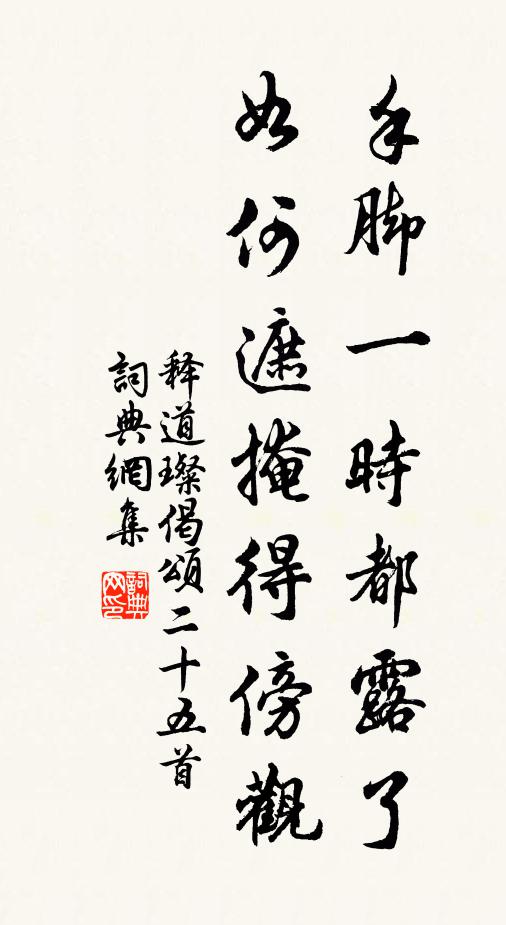 手脚一時都露了
如何遮掩得傍觀
释道璨偈頌二十五首
詞典網集
詞典网印